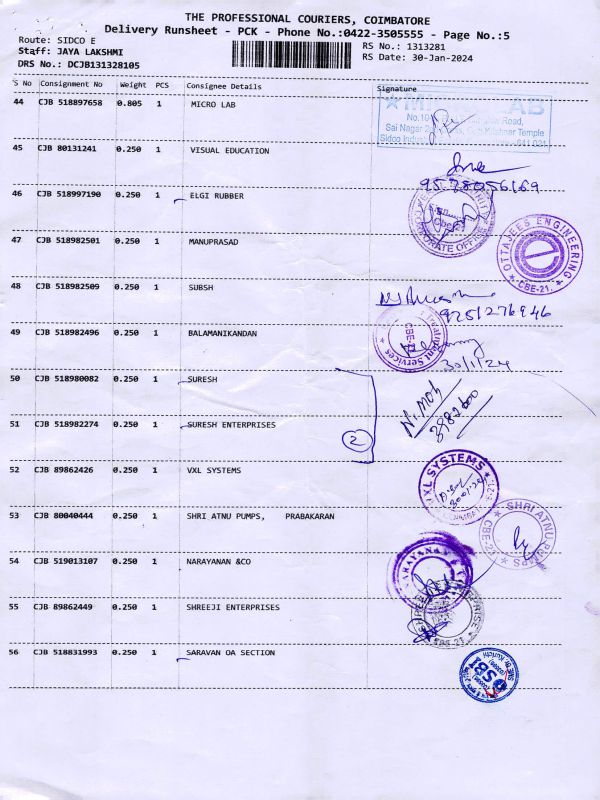 THE PROFESSIONAL COURIERS, COIMBATORE
Delivery Runsheet - PCK - Phone No.:0422-3505555 - Page No.:5
Route: SIDCO E
RS No.: 1313281
Staff: JAYA LAKSHMI
RS Date: 30-Jan-2024
DRS No.: DCJB131328105
S No Consignment No Weight PCS Consignee Details Signature
44 CJB 518897658 0.805 1 MICRO LAB
MICRO LAB
Sai Nagar
45 CJB 80131241 0.250 1 VISUAL EDUCATION
9578056169
46 CJB 518997190 0.250 1 ELGI RUBBER
CORPORATE OFFICE
47 CJB 518982501 0.250 1 MANUPRASAD
OTTAJEES ENGINEERING
CBE-21.
48 CJB 518982509 0.250 1 SUBSH
9751276946
49 CJB 518982496 0.250 1 BALAMANIKANDAN
Treatment Services
CBE-21
30/1/24
50 CJB 518980082 0.250 1 SURESH
51 CJB 518982274 0.250 1 SURESH ENTERPRISES
2
52 CJB 89862426 0.250 1 VXL SYSTEMS
VXL SYSTEMS
53 CJB 80040444 0.250 1 SHRI ATNU PUMPS, PRABAKARAN
SHRI ATNU PUMPS
54 CJB 519013107 0.250 1 NARAYANAN &CO
NARAYANAN
55 CJB 89862449 0.250 1 SHREEJI ENTERPRISES
CBE-21
56 CJB 518831993 0.250 1 SARAVAN OA SECTION
SBI